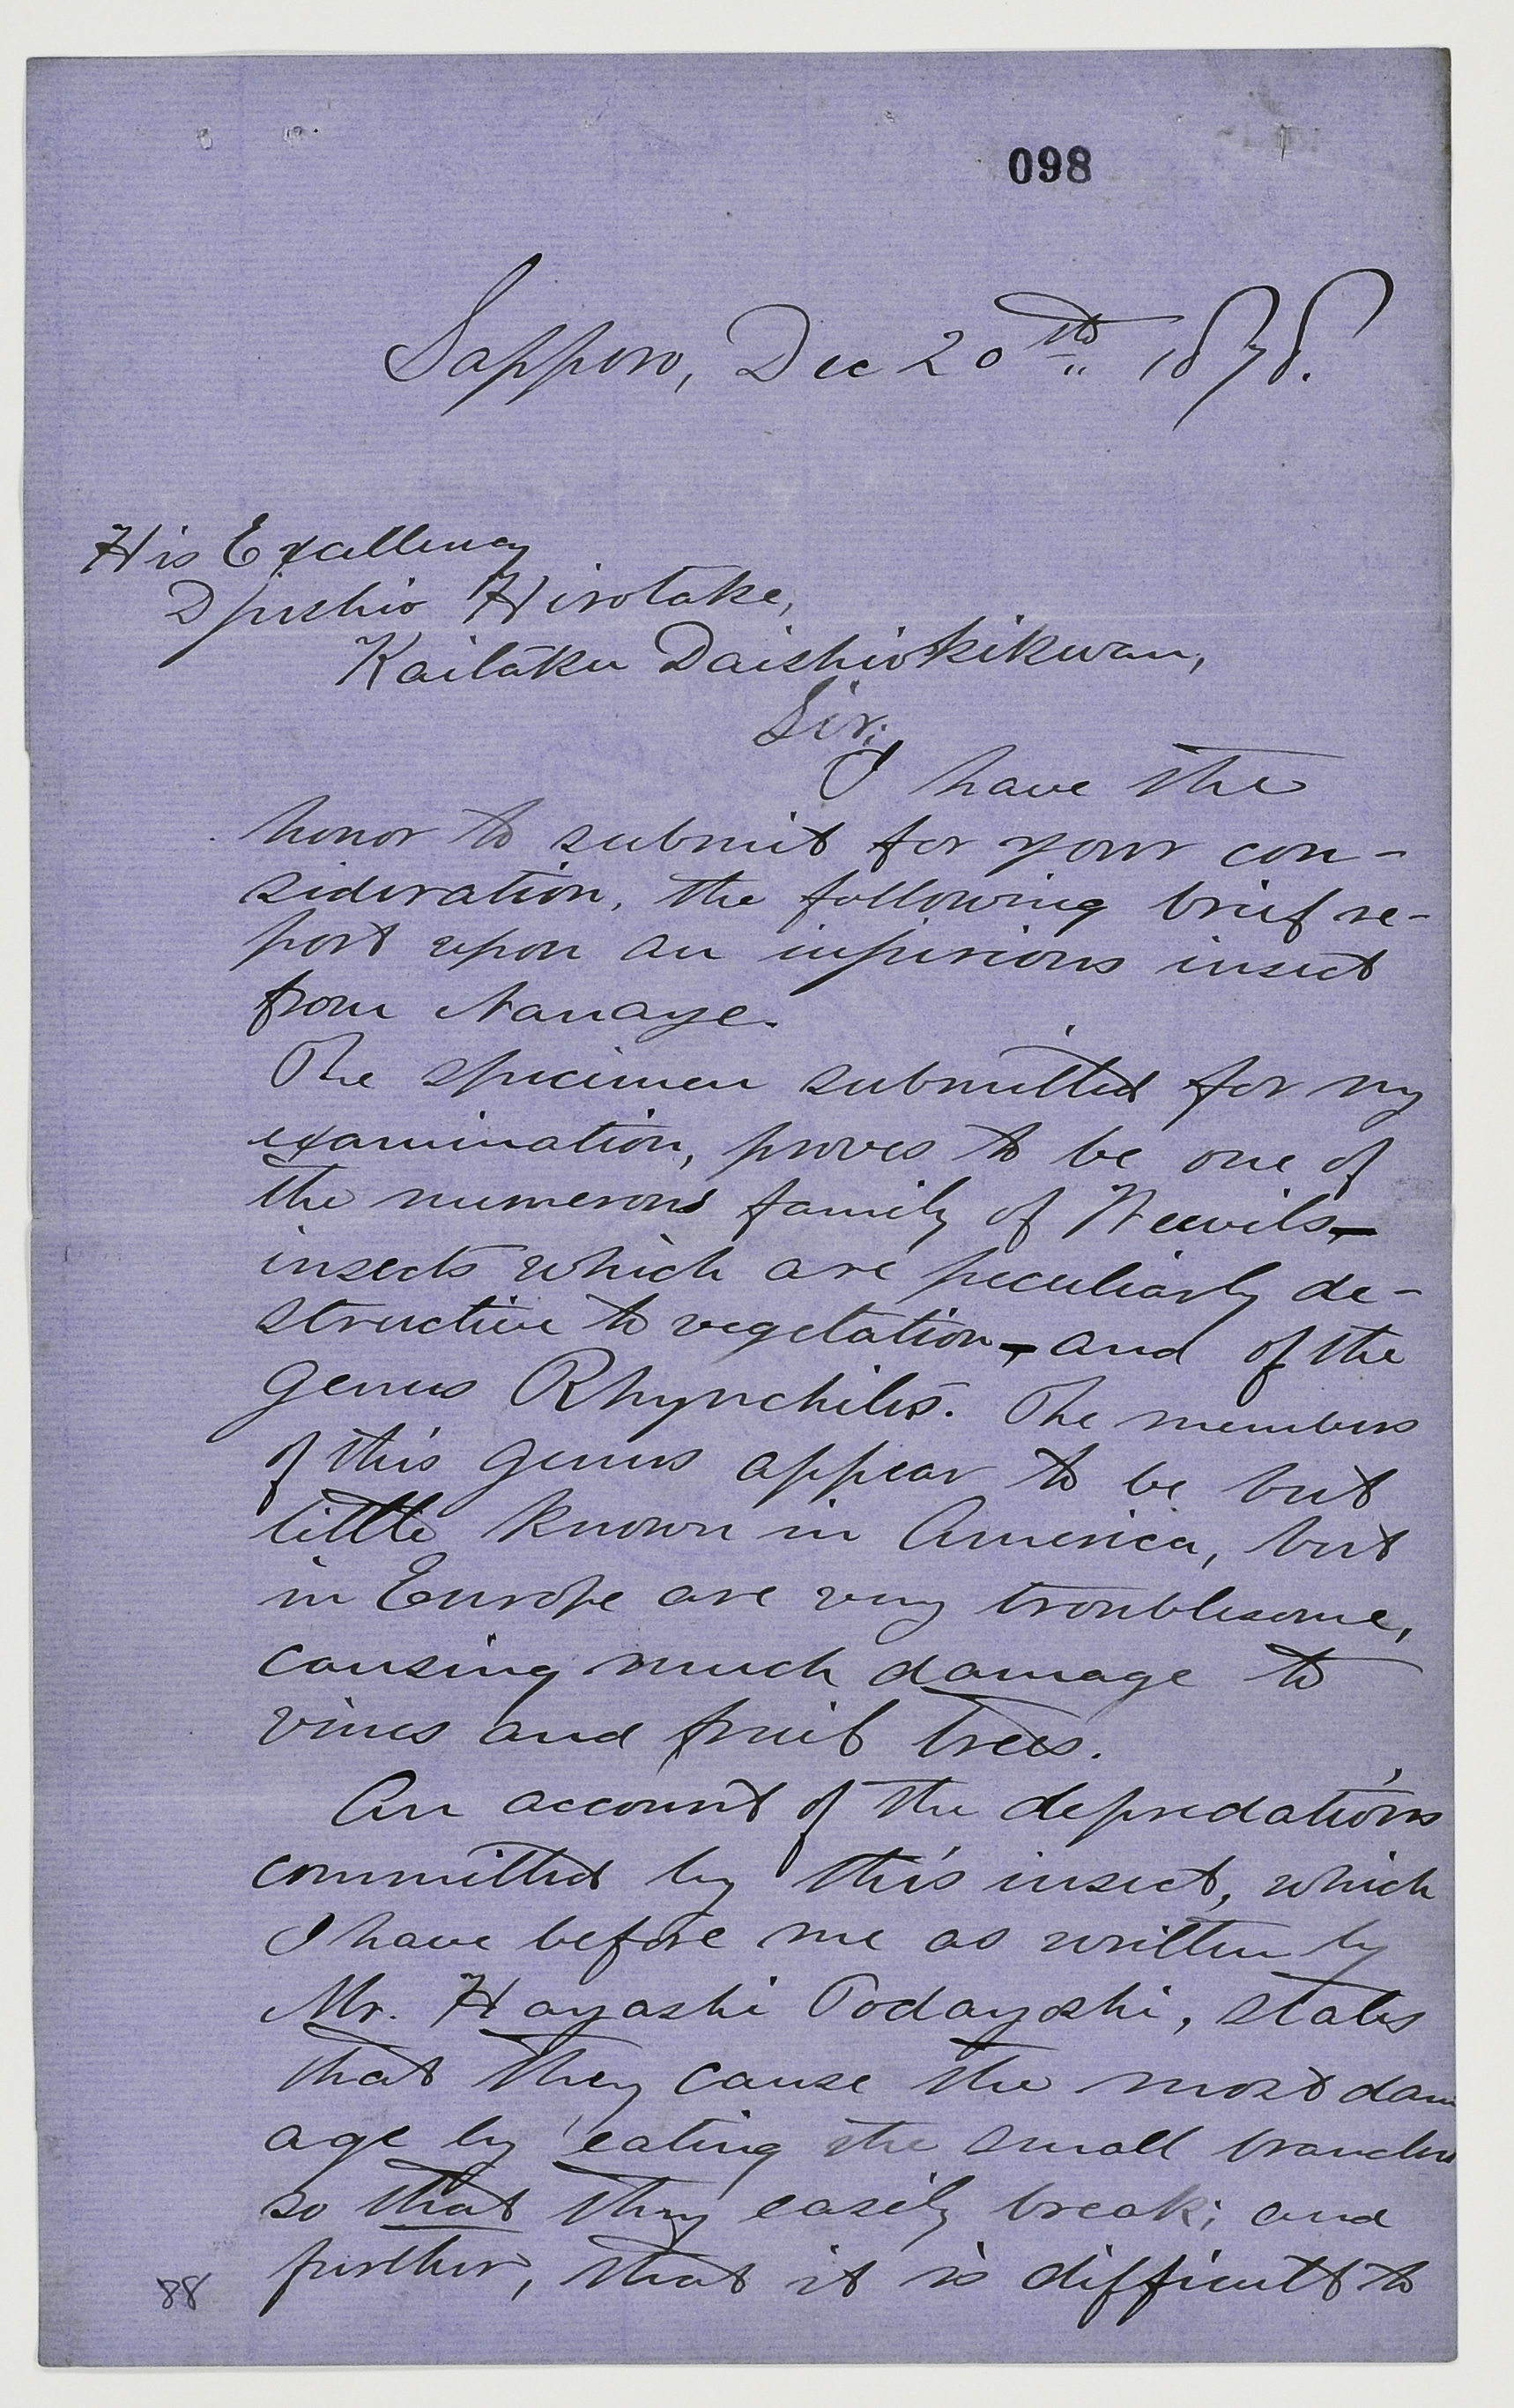 098
Sapporo, Dec 20th 1878.
His Excellency
Dzushio Hirotake,
Kaitaku Daishiokikwan,
Sir;
I have the
honor to submit for your con-
sideration, the following brief re-
port upon an injurious insect
from Nanaye.
The specimen submitted for my
examination, proves to be one of
the numerous family of Weevils—
insects which are peculiarly de-
structive to vegetation—and of the
genus Rhynchites. The members
of this genus appear to be but
little known in America, but
in Europe are very troublesome,
causing much damage to
vines and fruit trees.
An account of the depredations
committed by this insect, which
I have before me as written by
Mr. Hayashi Todayoshi, states
that they cause the most dam
age by eating the small branches
so that they easily break; and
further, that it is difficult to
88